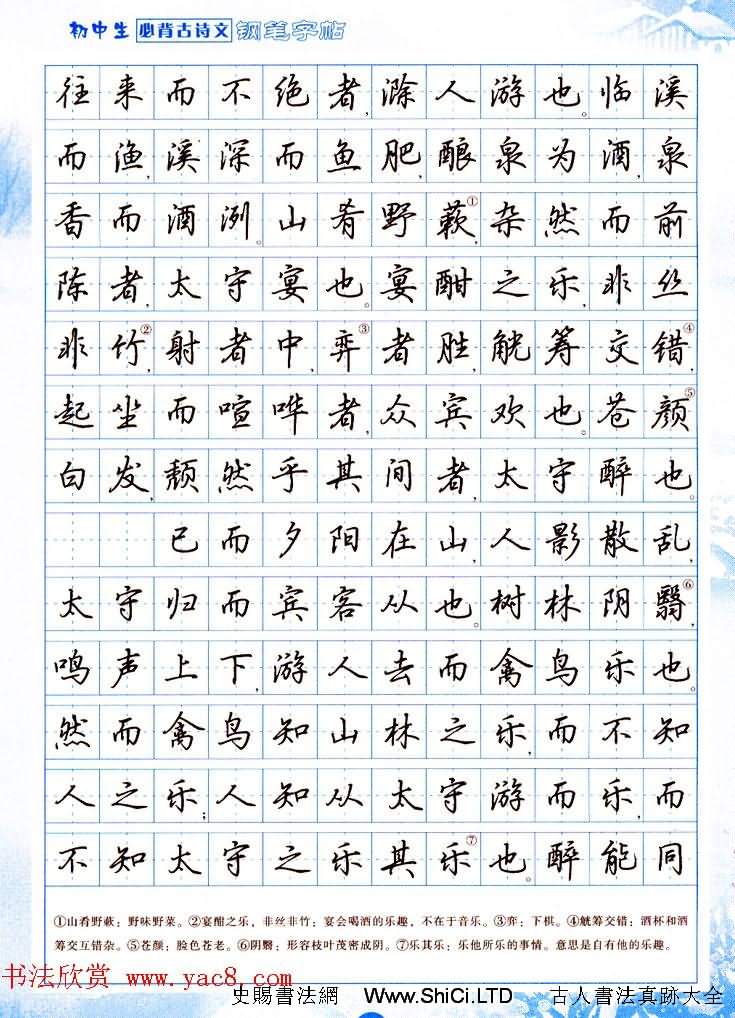 初中生 必背古诗文 钢笔字帖
往来而不绝者，滁人游也。临溪
而渔，溪深而鱼肥，酿泉为酒，泉
香而酒洌。山肴野蔌①，杂然而前
陈者，太守宴也。宴酣之乐，非丝
非竹②，射者中，弈③者胜，觥筹交错④，
起坐而喧哗者，众宾欢也。苍颜⑤
白发，颓然乎其间者，太守醉也。
已而夕阳在山，人影散乱，
太守归而宾客从也。树林阴翳⑥，
鸣声上下，游人去而禽鸟乐也。
然而禽鸟知山林之乐，而不知
人之乐；人知从太守游而乐，而
不知太守之乐其乐⑦也。醉能同
①山肴野蔌：野味野菜。②宴酣之乐，非丝非竹：宴会喝酒的乐趣，不在于音乐。③弈：下棋。④觥筹交错：酒杯和酒
筹交互错杂。⑤苍颜：脸色苍老。⑥阴翳：形容枝叶茂密成阴。⑦乐其乐：乐他所乐的事情。意思是自有他的乐趣。
书法欣赏 www.yac8.com
史賜書法網 Www.ShiCi.LTD 古人書法真跡大全